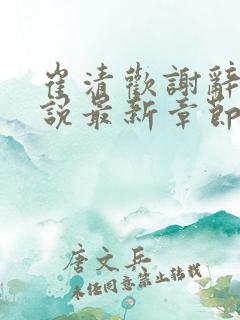 崔清歡謝辭
說最新章節
唐文兵
未经同意禁止转载